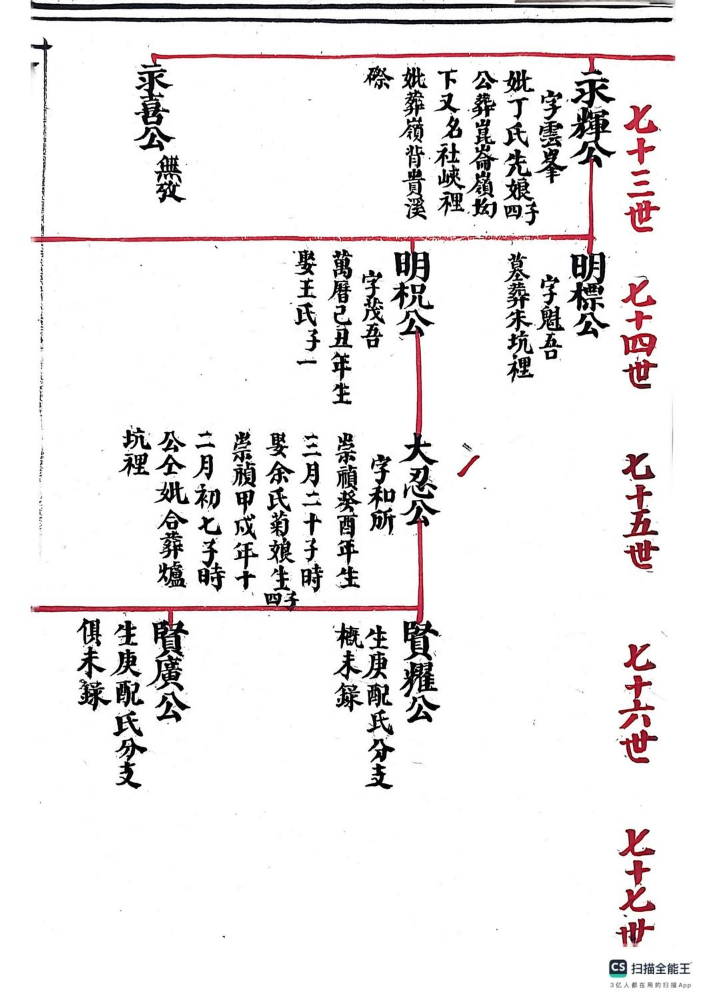 七十三世
永輝公
字雲峯
妣丁氏先娘四子
公葬崑崙嶺㘭
下又名社峽裡
妣葬嶺背貴溪
磜
永喜公
無攷
七十四世
明標公
字魁吾
墓葬朱坑裡
明祝公
字茂吾
萬曆己丑年生
娶王氏子一
七十五世
大忍公
字和所
崇禎癸酉年生
三月二十子時
娶余氏菊娘生四子
崇禎甲戍年十
二月初七子時
公仝妣合葬爐
坑裡
七十六世
賢耀公
生庚配氏分支
概未録
賢廣公
生庚配氏分支
俱未録
七十七世
CS 扫描全能王
3亿人都在用的扫描App